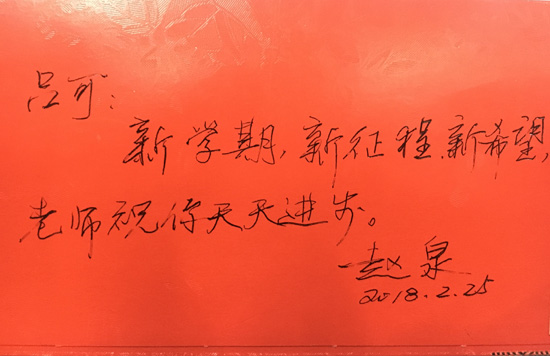 吕可：
新学期，新征程，新希望，
老师祝你天天进步。
赵泉
2018.2.25